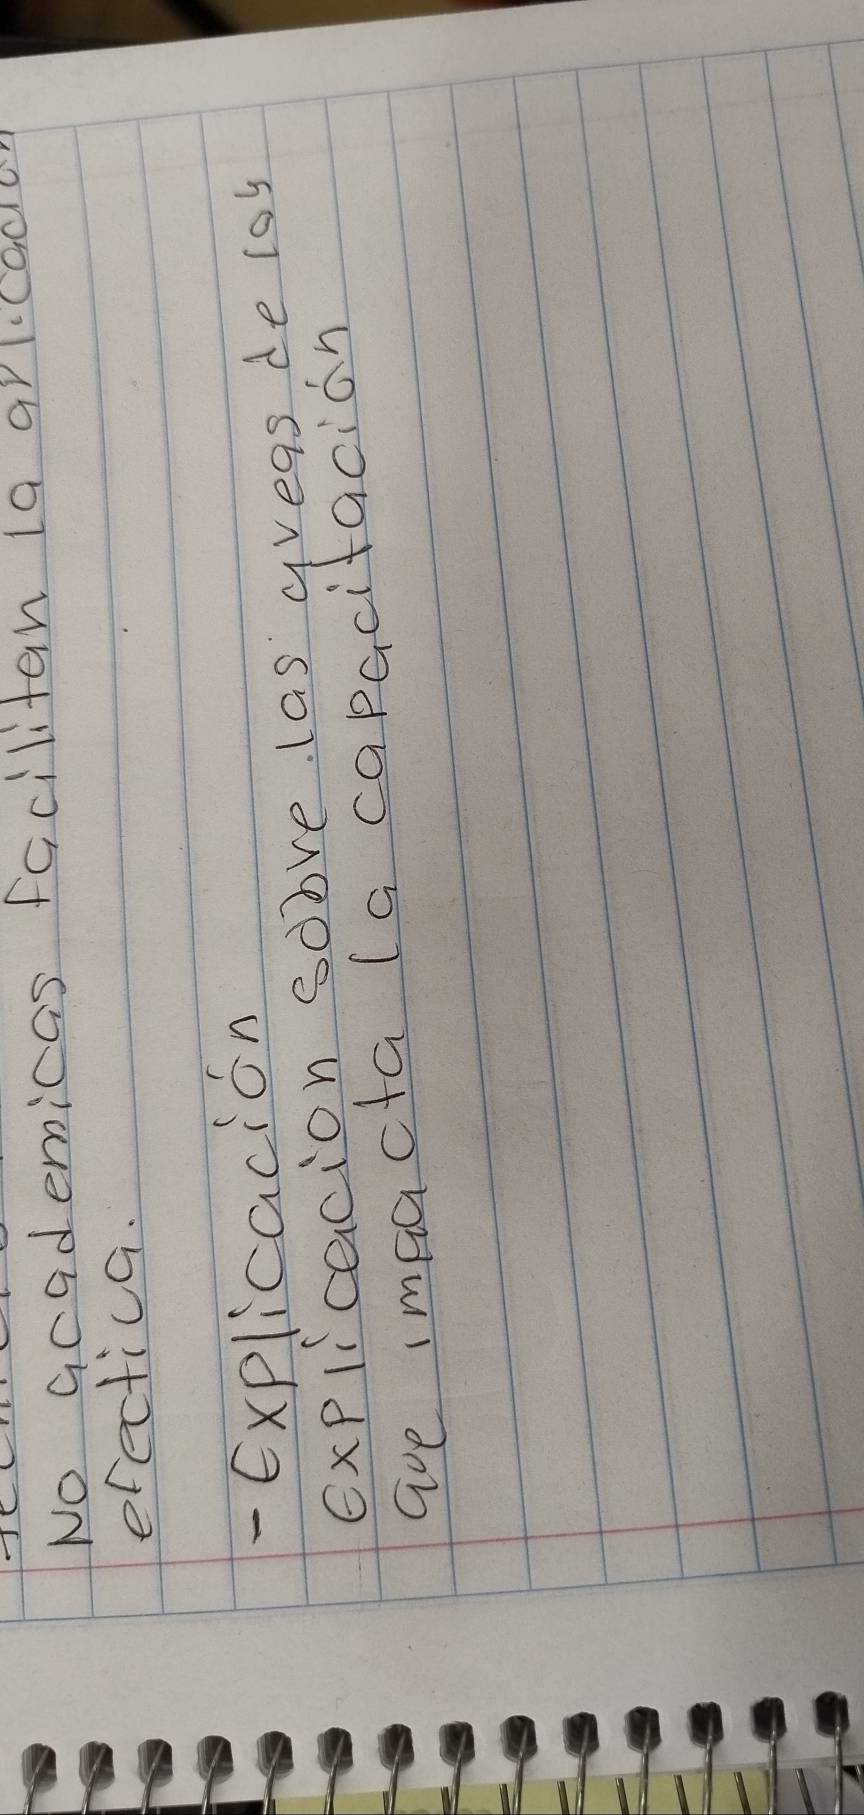 No academicas facilitan la aplicación
efectiva.
- Explicación
Explicacion sobre las areas de las
que impacta la capacitación